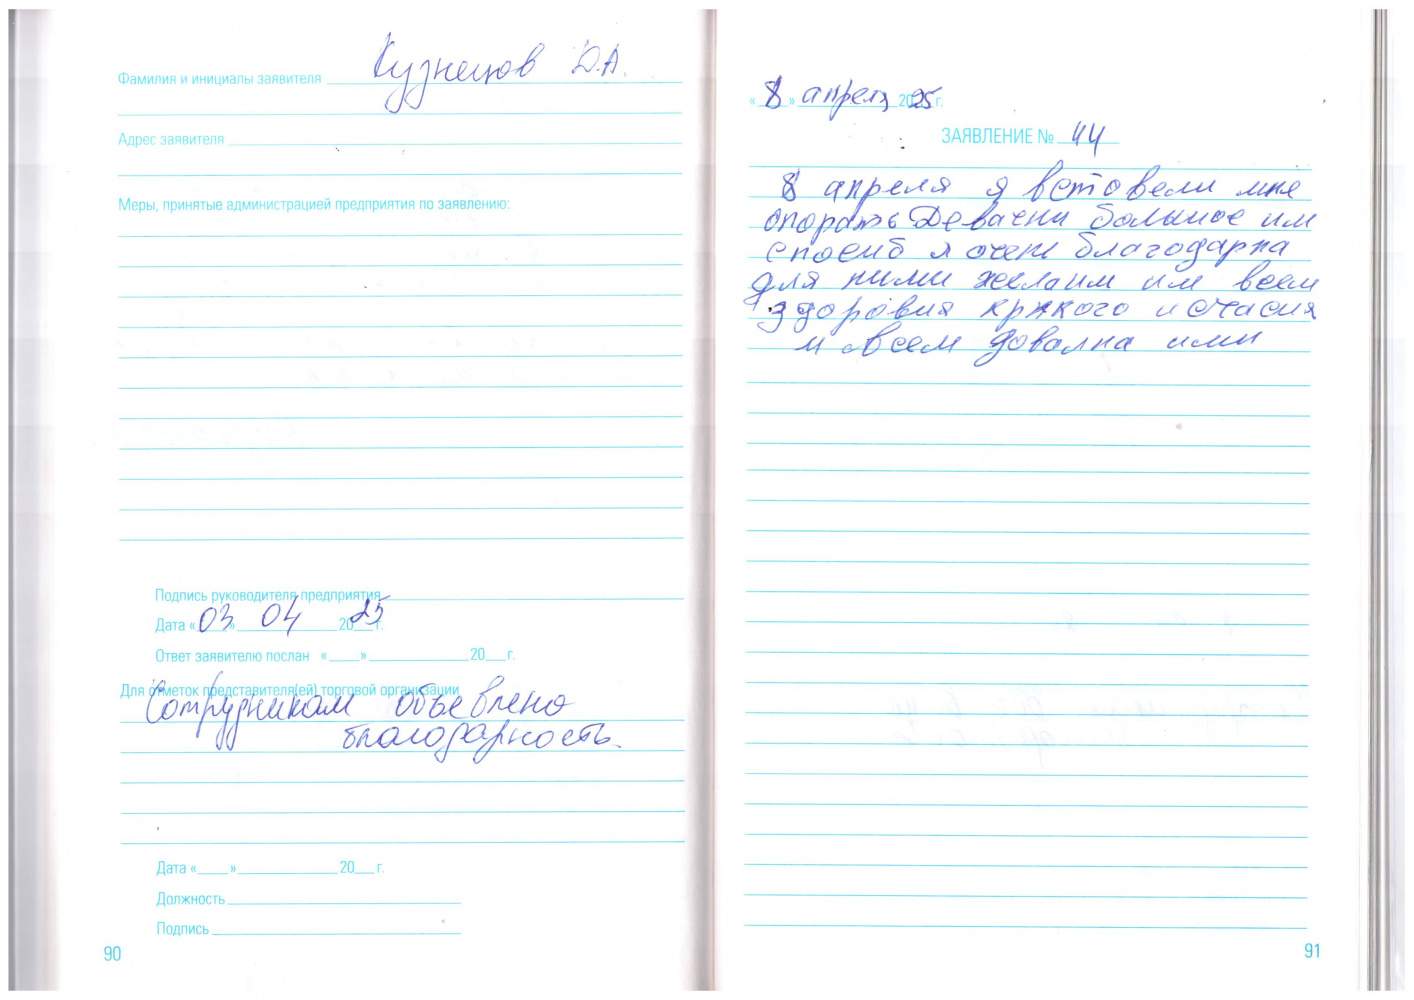 Фамилия и инициалы заявителя Кузнецов Д.А.
Адрес заявителя
Меры, принятые администрацией предприятия по заявлению:
Подпись руководителя предприятия
Дата «03» 04 2025 г.
Ответ заявителю послан « » 20 г.
Для отметок представителя(ей) торговой организации
Сотрудникам объевлено
благодарность.
Дата « » 20 г.
Должность
Подпись
90
«8» апреля 2025 г.
ЗАЯВЛЕНИЕ № 44
8 апреля я встовели мне
опорать Девачки большое им
спосиб я очень благодарна
для ними желаим им всем
здоровия крпкого и счасия
и всем довална ими
91